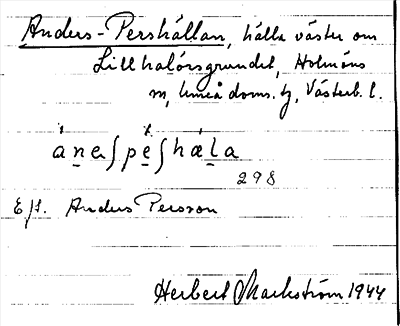 Anders-Pershällan, hälla väster om
Lillhalörsgrundet, Holmöns
sn, Umeå doms. tg, Västerb. l.
áne̲ʃpè̲ʃhäl̲a
298
Eft. Anders Persson
Herbert Markström 1944